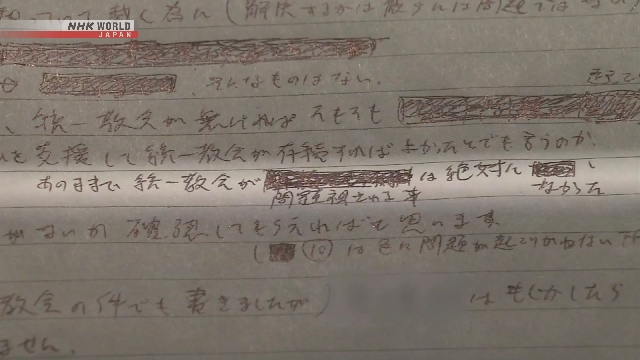 NHK WORLD
JAPAN
って裁く為に(解決するかは
そんなものはない.
、統一教会が無ければそもそも
を支援して統一教会が存続すればよかったとでも言うのか.
あのままで統一教会が は絶対に
問題視される事 なかった
がないか確認してもらえればと思います
(⑩)は色々問題が起こりかねない
教会の件でも書きましたが) はもしかしたら
ません.